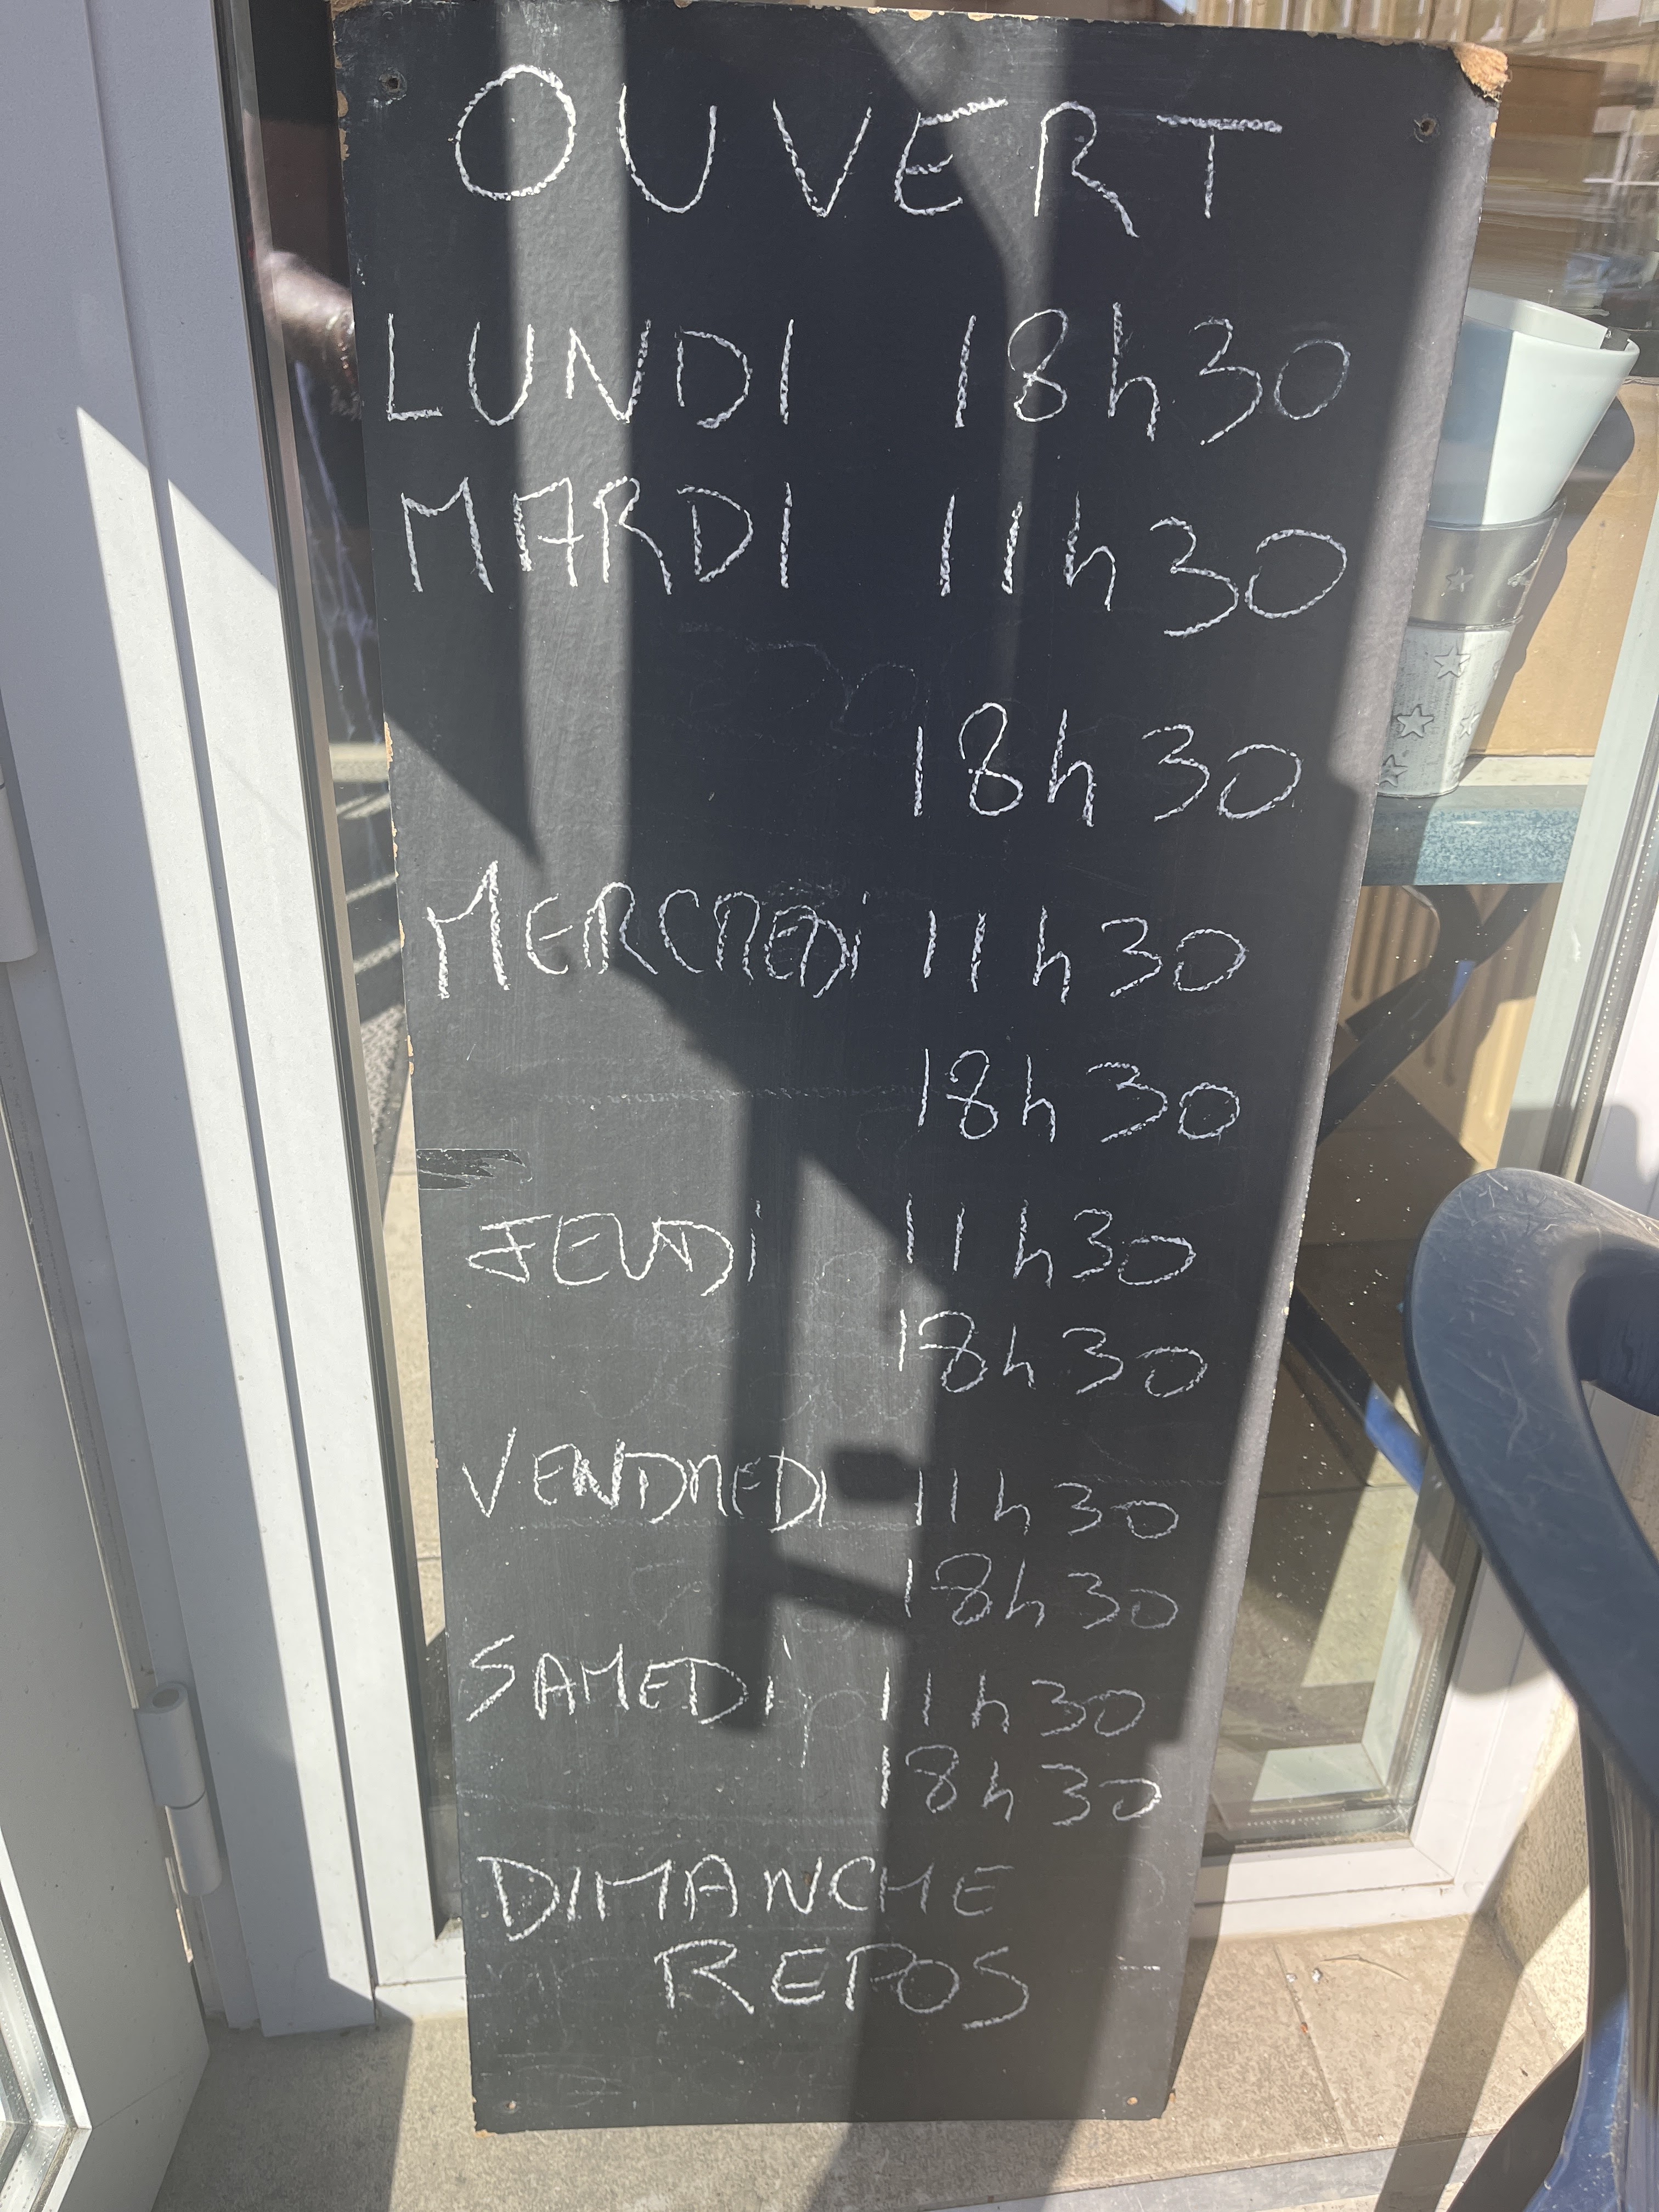 OUVERT
LUNDI 18h30
MARDI 11h30
18h30
MERCREDi 11h30
18h30
JEUDi 11h30
18h30
VENDREDI 11h30
18h30
SAMEDi 11h30
18h30
DIMANCHE
REPOS